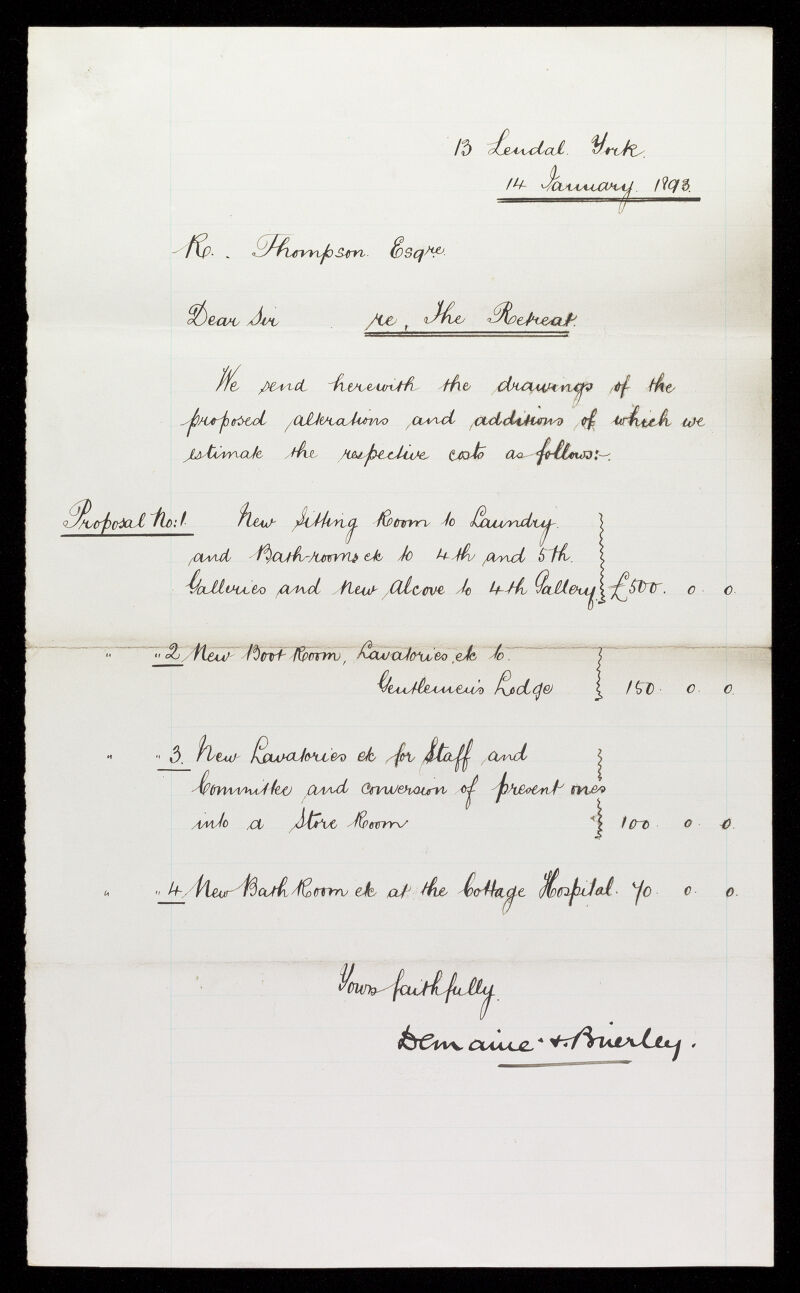 13 Lendal. York.
14 January. 1893.
R. Thompson. Esqre.
Dear Sir re, The Retreat.
We send herewith the drawings of the
proposed alterations and additions of which we
estimate the respective costs as follows:-.
Proposal No: 1. New Sitting Room to Laundry.
and Bath-rooms etc to 4th and 5th.
Galleries and New Alcove to 4th Gallery £500. 0. 0.
" " 2 New Boot Room, Lavatories, etc to.
Gentlemen's Lodge 150. 0. 0.
" " 3. New Lavatories etc for Staff and
Committee and conversion of present ones
into a Store Room 100. 0. 0.
" " 4. New Bath Room etc at the Cottage Hospital. 70 0. 0.
Yours faithfully.
Demaine & Brierley.